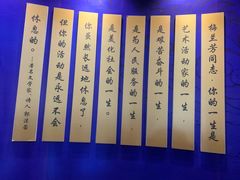 梅兰芳同志，你的一生是
艺术活动家的一生，
是艰苦奋斗的一生，
是为人民服务的一生，
是美化社会的一生。
你虽然长远地休息了，
但你的活动是永远不会
休息的。——著名文学家、诗人 郭沫若